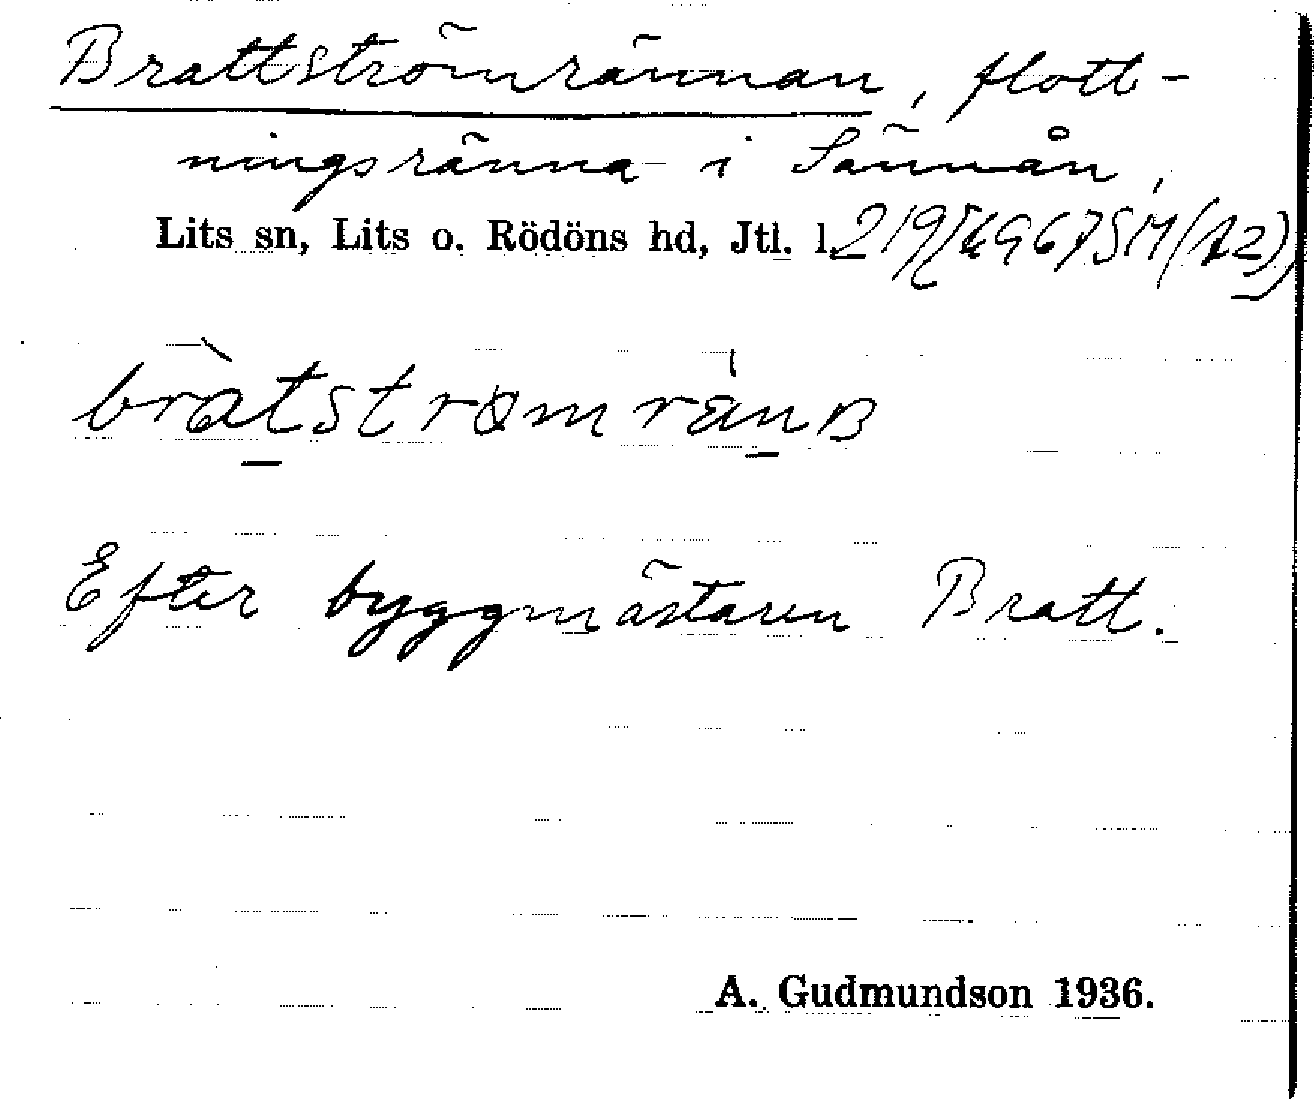 Brattströmrännan, flott-
ningsränna i Sännån,
Lits sn, Lits o. Rödöns hd, Jtl. l.
bràtstrømränɐ
Efter byggmästaren Bratt.
A. Gudmundson 1936.